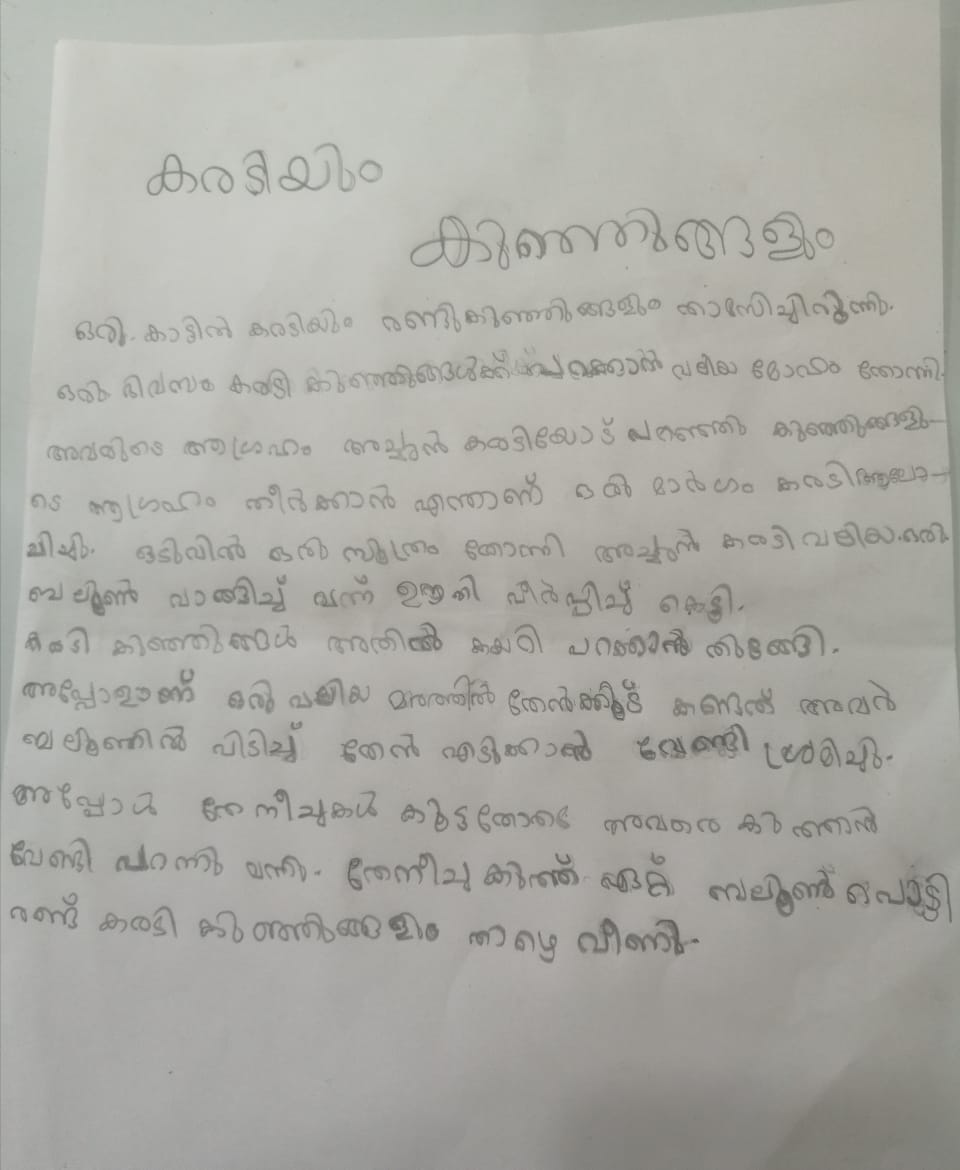 കരടിയും
കുഞ്ഞുങ്ങളും
ഒരു കാട്ടിൽ കരടിയും രണ്ടു കുഞ്ഞുങ്ങളും താമസിച്ചിരുന്നു.
ഒരു ദിവസം കരടി കുഞ്ഞുങ്ങൾക്ക് പറക്കാൻ വലിയ മോഹം തോന്നി.
അവരുടെ ആഗ്രഹം അച്ഛൻ കരടിയോട് പറഞ്ഞു കുഞ്ഞുങ്ങളു-
ടെ ആഗ്രഹം തീർക്കാൻ എന്താണ് ഒരു മാർഗം കരടി ആലോ-
ചിച്ചു. ഒടുവിൽ ഒരു സൂത്രം തോന്നി അച്ഛൻ കരടി വലിയ ഒരു
ബലൂൺ വാങ്ങിച്ച് വന്ന് ഊതി വീർപ്പിച്ച് കെട്ടി.
കരടി കുഞ്ഞുങ്ങൾ അതിൽ കയറി പറക്കാൻ തുടങ്ങി.
അപ്പോളാണ് ഒരു വലിയ മരത്തിൽ തേൻക്കൂട് കണ്ടത് അവർ
ബലൂണിൽ പിടിച്ച് തേൻ എടുക്കാൻ വേണ്ടി ശ്രമിച്ചു.
അപ്പോൾ തേനീച്ചകൾ കൂട്ടത്തോടെ അവരെ കുത്താൻ
വേണ്ടി പറന്നു വന്നു. തേനീച്ച കുത്ത് ഏറ്റ് ബലൂൺ പൊട്ടി
രണ്ട് കരടി കുഞ്ഞുങ്ങളും താഴെ വീണു.